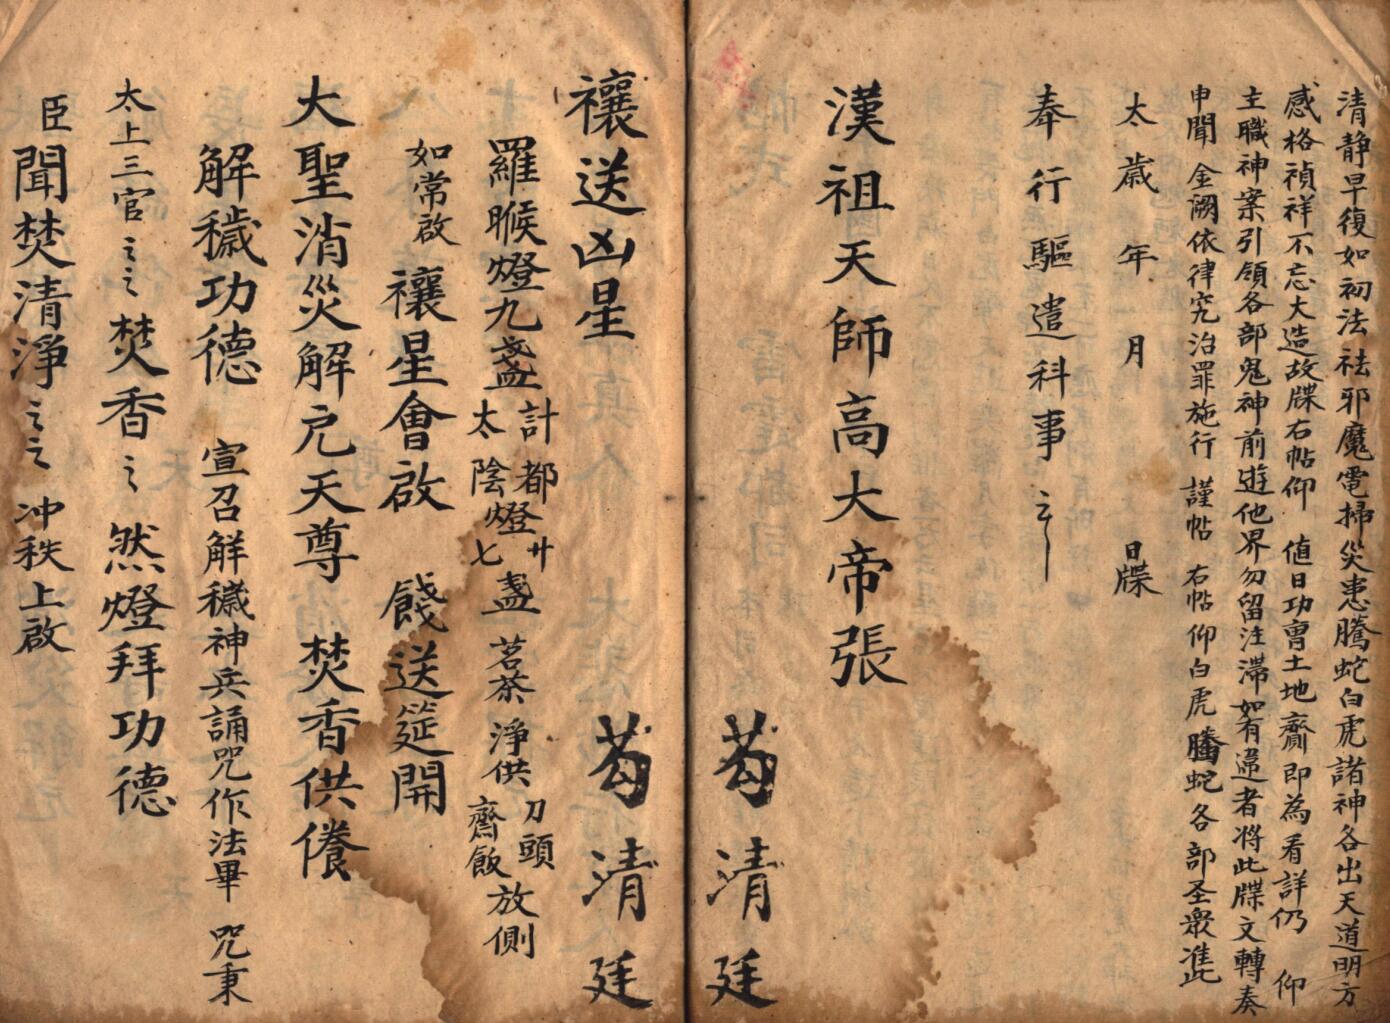 清静早復如初法祛邪魔電掃災患騰蛇白虎諸神各出天道明方
感格禎祥不忘大造故牒右帖仰 值日功曺土地齎即為看詳仍 仰
主職神案引領各部鬼神前遊他界勿留注滞如有違者将此牒文轉奏
申聞 金闕依律究治罪施行 謹帖 右帖仰白虎騰蛇各部圣衆准此
太歲 年 月 日牒
奉行驅遣科事
漢祖天師高大帝張
苟清廷
禳送凶星
苟清廷
羅睺燈九盞 計都燈廿 太陰燈七 盞 茗茶淨供 刀頭 齋飯 放側
如常啟 禳星會啟 餞送筵開
大聖消災解厄天尊 焚香供養
解穢功德 宣召解穢神兵誦咒作法畢 咒秉
太上三官 之之 焚香之 然燈拜功德
臣聞焚清淨之之 冲秩上啟